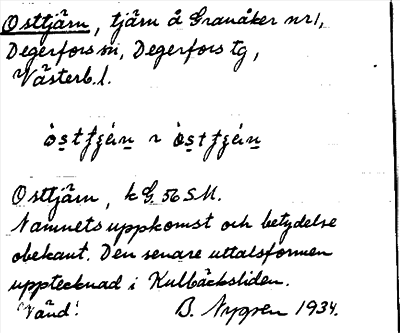 Osttjärn, tjärn å Granåker nr 1,
Degerfors sn, Degerfors tg,
Västerb. l.
Osttjärn, k G. 56 S.M.
Namnets uppkomst och betydelse
obekant. Den senare uttalsformen
upptecknad i Kulbäcksliden.
Vänd! B. Nygren 1934.